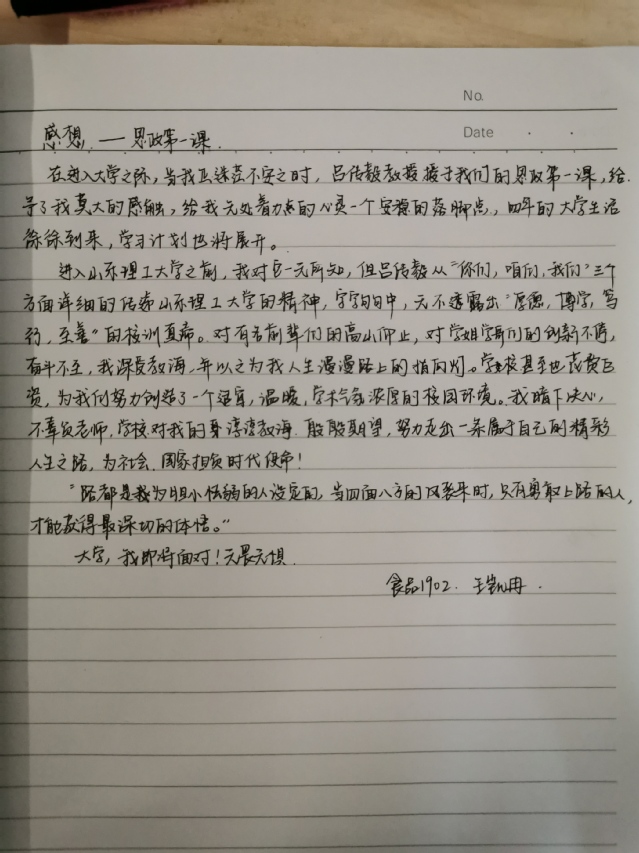 No.
Date
感想.——思政第一课.
在进入大学之际，当我正迷茫不安之时，吕传毅教授授于我们的思政第一课，给
予了我莫大的感触，给我无处着力点的心灵一个安稳的落脚点，四年的大学生活
徐徐到来，学习计划也将展开。
进入山东理工大学之前，我对它一无所知，但吕传毅从"你们，咱们，我们"三个
方面详细的传递山东理工大学的精神，字字句句中，无不透露出"厚德，博学，笃
行，至善"的校训真谛。对有名前辈们的高山仰止，对学姐学哥们的创新不停，
奋斗不至，我深受教诲，并以之为我人生漫漫路上的指向灯。学校甚至也花费巨
资，为我们努力创造了一个适宜，温暖，学术气氛浓厚的校园环境。我暗下决心，
不辜负老师，学校对我的谆谆教诲.殷殷期望，努力走出一条属于自己的精彩
人生之路，为社会、国家担负时代使命！
"路都是我为胆小怯弱的人设定的，当四面八方的风袭来时，只有勇敢上路的人，
才能获得最深切的体悟。"
大学，我即将面对！无畏无惧.
食品1902. 王凯冉.